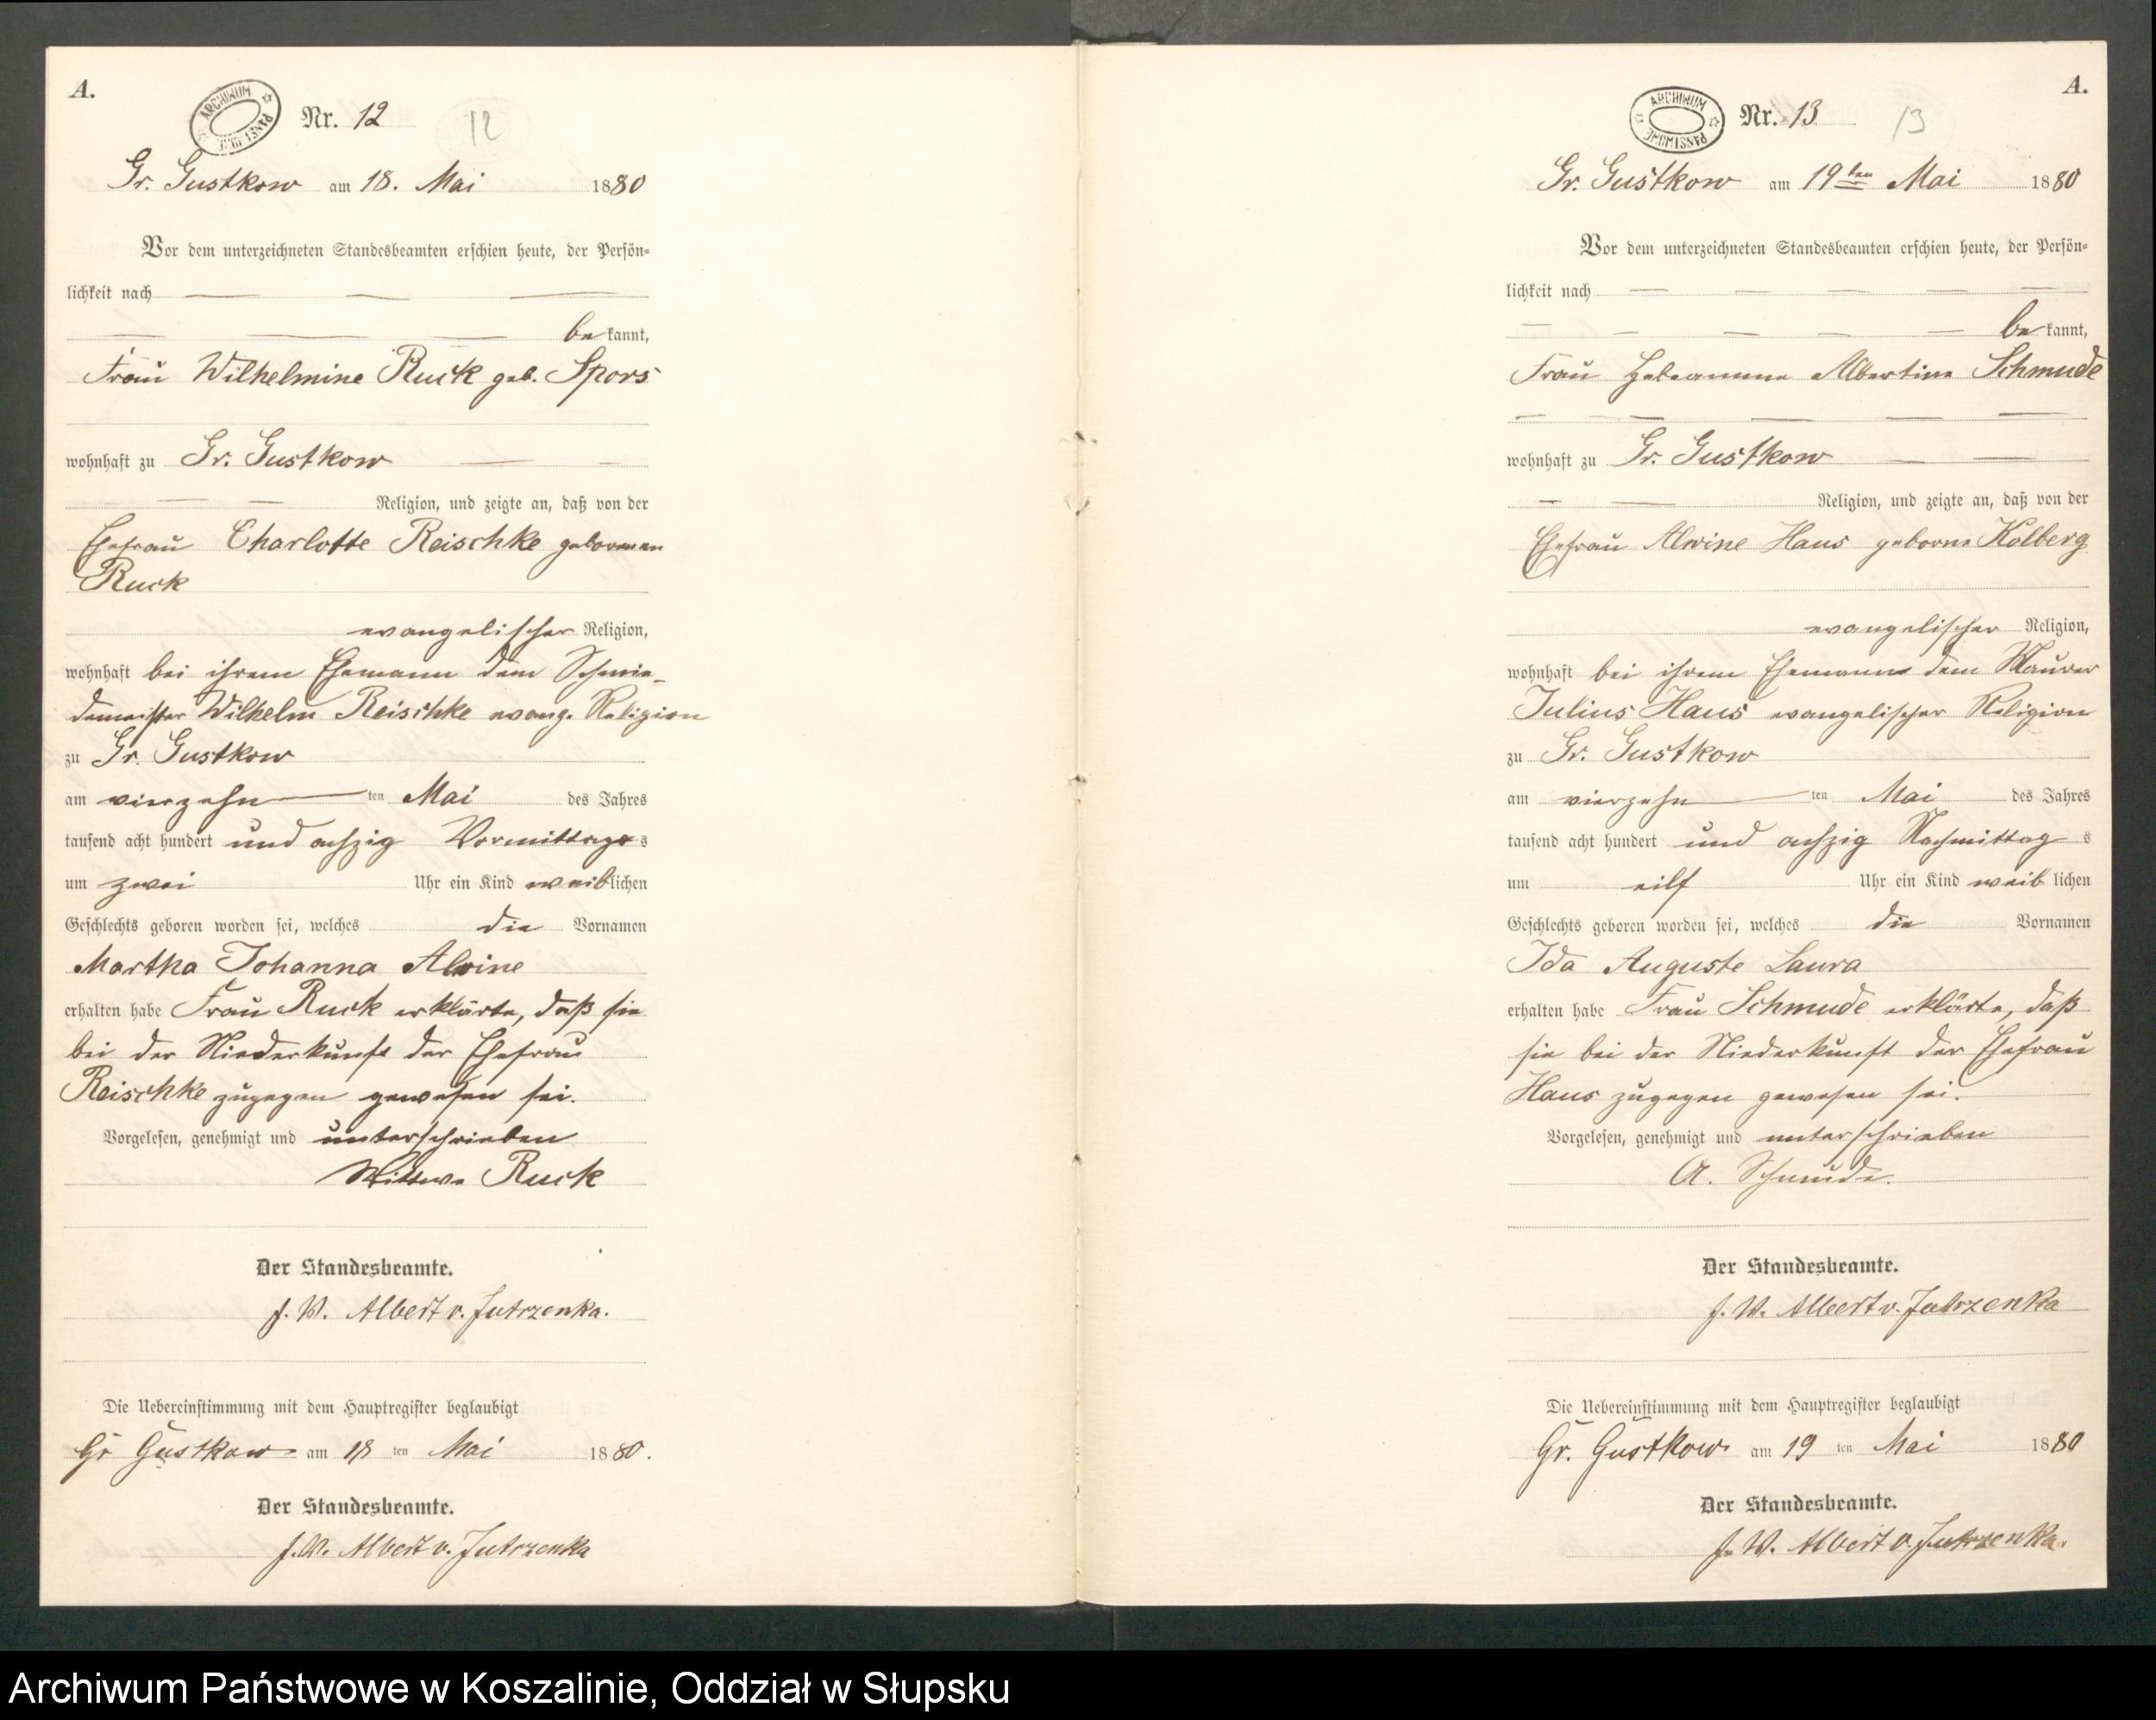 A.
ARCHIWUM PAŃSTWOWE
Nr. 12
12
Gr. Gustkow am 18. Mai 1880
Vor dem unterzeichneten Standesbeamten erschien heute, der Persön-
lichkeit nach
be kannt,
Frau Wilhelmine Ruck geb. Spors
wohnhaft zu Gr. Gustkow
Religion, und zeigte an, daß von der
Ehefrau Charlotte Reischke geborenen
Ruck
evangelischer Religion,
wohnhaft bei ihrem Ehemann dem Schmie-
demeister Wilhelm Reischke evang. Religion
zu Gr. Gustkow
am vierzehn ten Mai des Jahres
tausend acht hundert und achzig Vormittags
um zwei Uhr ein Kind weiblichen
Geschlechts geboren worden sei, welches die Vornamen
Martha Johanna Alwine
erhalten habe Frau Ruck erklärte, daß sie
bei der Niederkunft der Ehefrau
Reischke zugegen gewesen sei.
Vorgelesen, genehmigt und unterschrieben
Wittwe Ruck
Der Standesbeamte.
J. W. Albert v. Jutrzenka.
Die Uebereinstimmung mit dem Hauptregister beglaubigt
Gr Gustkow am 18 ten Mai 1880.
Der Standesbeamte.
J. W. Albert v. Jutrzenka
A.
ARCHIWUM PAŃSTWOWE
Nr. 13
13
Gr. Gustkow am 19ten Mai 1880
Vor dem unterzeichneten Standesbeamten erschien heute, der Persön-
lichkeit nach
be kannt,
Frau Hebeamme Albertine Schmude
wohnhaft zu Gr. Gustkow
Religion, und zeigte an, daß von der
Ehefrau Alwine Haus geborne Kolberg
evangelischer Religion,
wohnhaft bei ihrem Ehemanne dem Maurer
Julius Haus evangelischer Religion
zu Gr. Gustkow
am vierzehn ten Mai des Jahres
tausend acht hundert und achzig Nachmittag s
um eilf Uhr ein Kind weib lichen
Geschlechts geboren worden sei, welches die Vornamen
Ida Auguste Laura
erhalten habe Frau Schmude erklärte, daß
sie bei der Niederkunft der Ehefrau
Haus zugegen gewesen sei.
Vorgelesen, genehmigt und unterschrieben
A. Schmude.
Der Standesbeamte.
J. W. Albert v. Jutrzenka
Die Uebereinstimmung mit dem Hauptregister beglaubigt
Gr. Gustkow am 19 ten Mai 1880
Der Standesbeamte.
J. W. Albert v. Jutrzenka.
Archiwum Państwowe w Koszalinie, Oddział w Słupsku